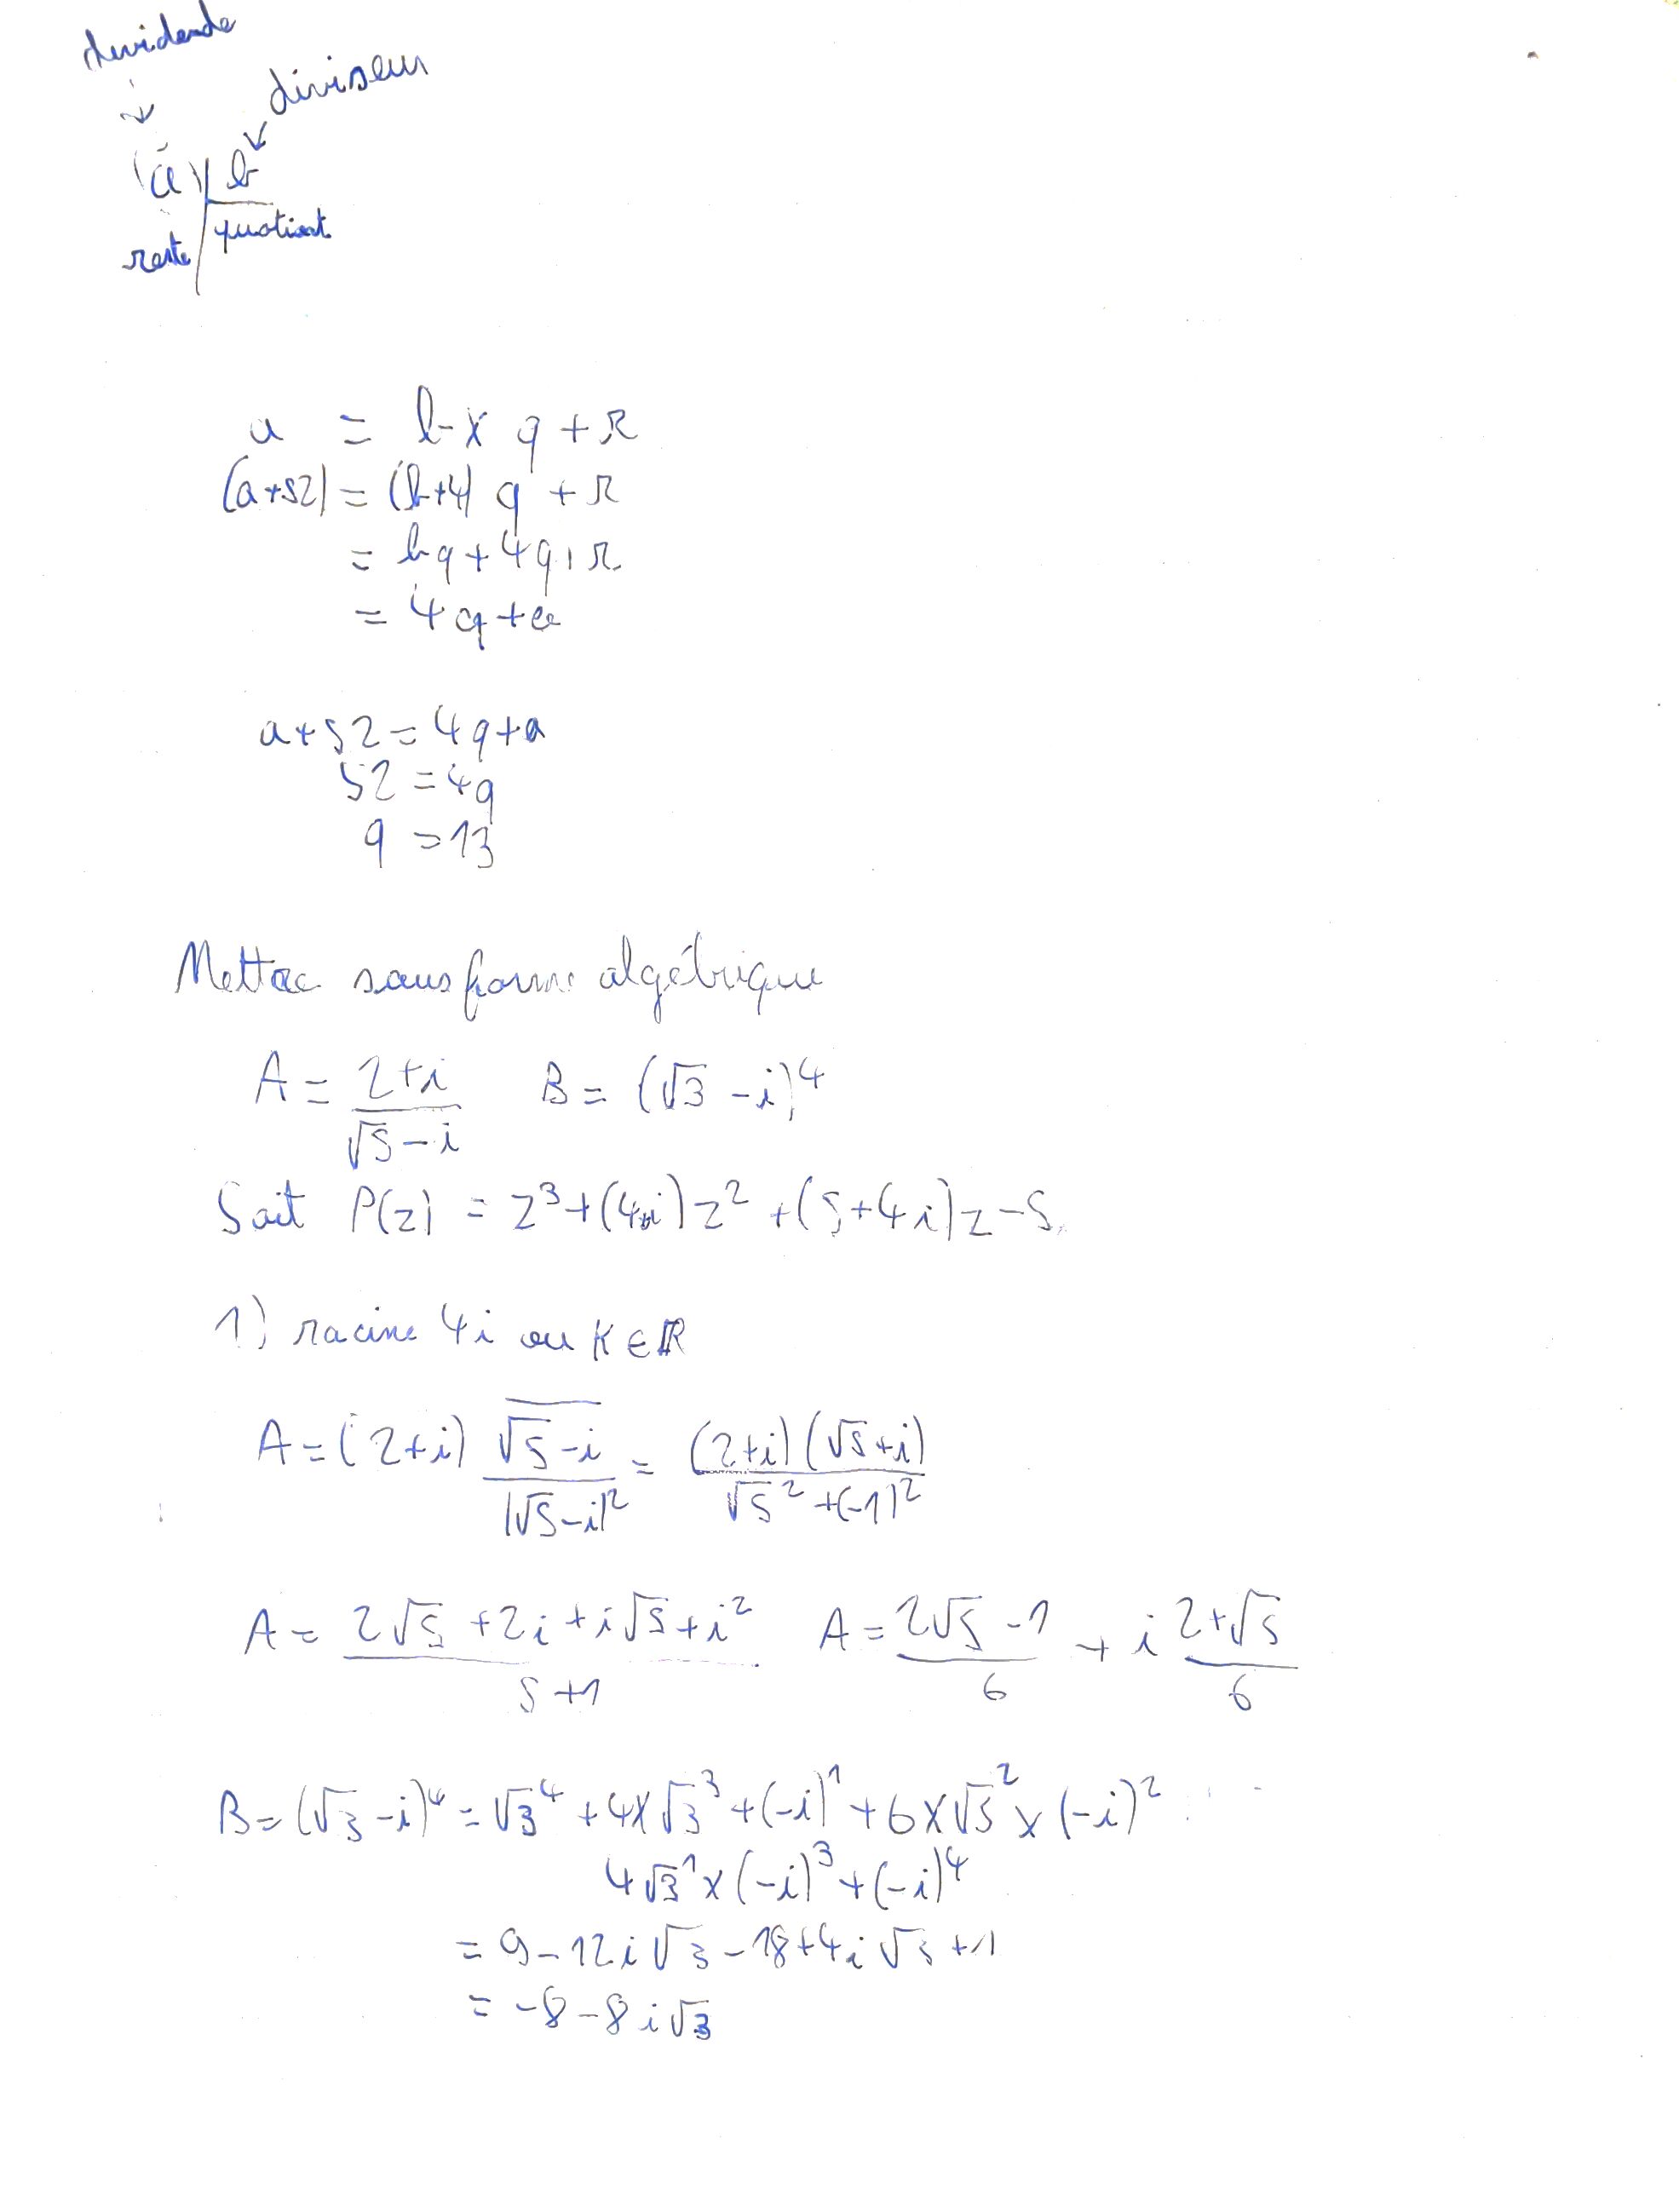 dividende
diviseur
(a) b
reste quotient
a = b × q + r
(a+52) = (b+4) q + r
= bq + 4q + r
= 4q + a
a + 52 = 4q + a
52 = 4q
q = 13
Mettre sous forme algébrique
A = (2+i)/(√5 - i) B = (√3 - i)^4
Soit P(z) = z³ + (4+i)z² + (5+4i)z - 5
1) racine 4i ou K ∈ ℝ
A = (2+i) \overline{√5 - i}/|√5 - i|² = (2+i)(√5+i)/(√5² + (-1)²)
A = (2√5 + 2i + i√5 + i²)/(5+1) A = (2√5 - 1)/6 + i (2+√5)/6
B = (√3 - i)⁴ = √3⁴ + 4×√3³ + (-i)¹ + 6×√3² × (-i)²
4√3¹ × (-i)³ + (-i)⁴
= 9 - 12i√3 - 18 + 4i√3 + 1
= -8 - 8i√3